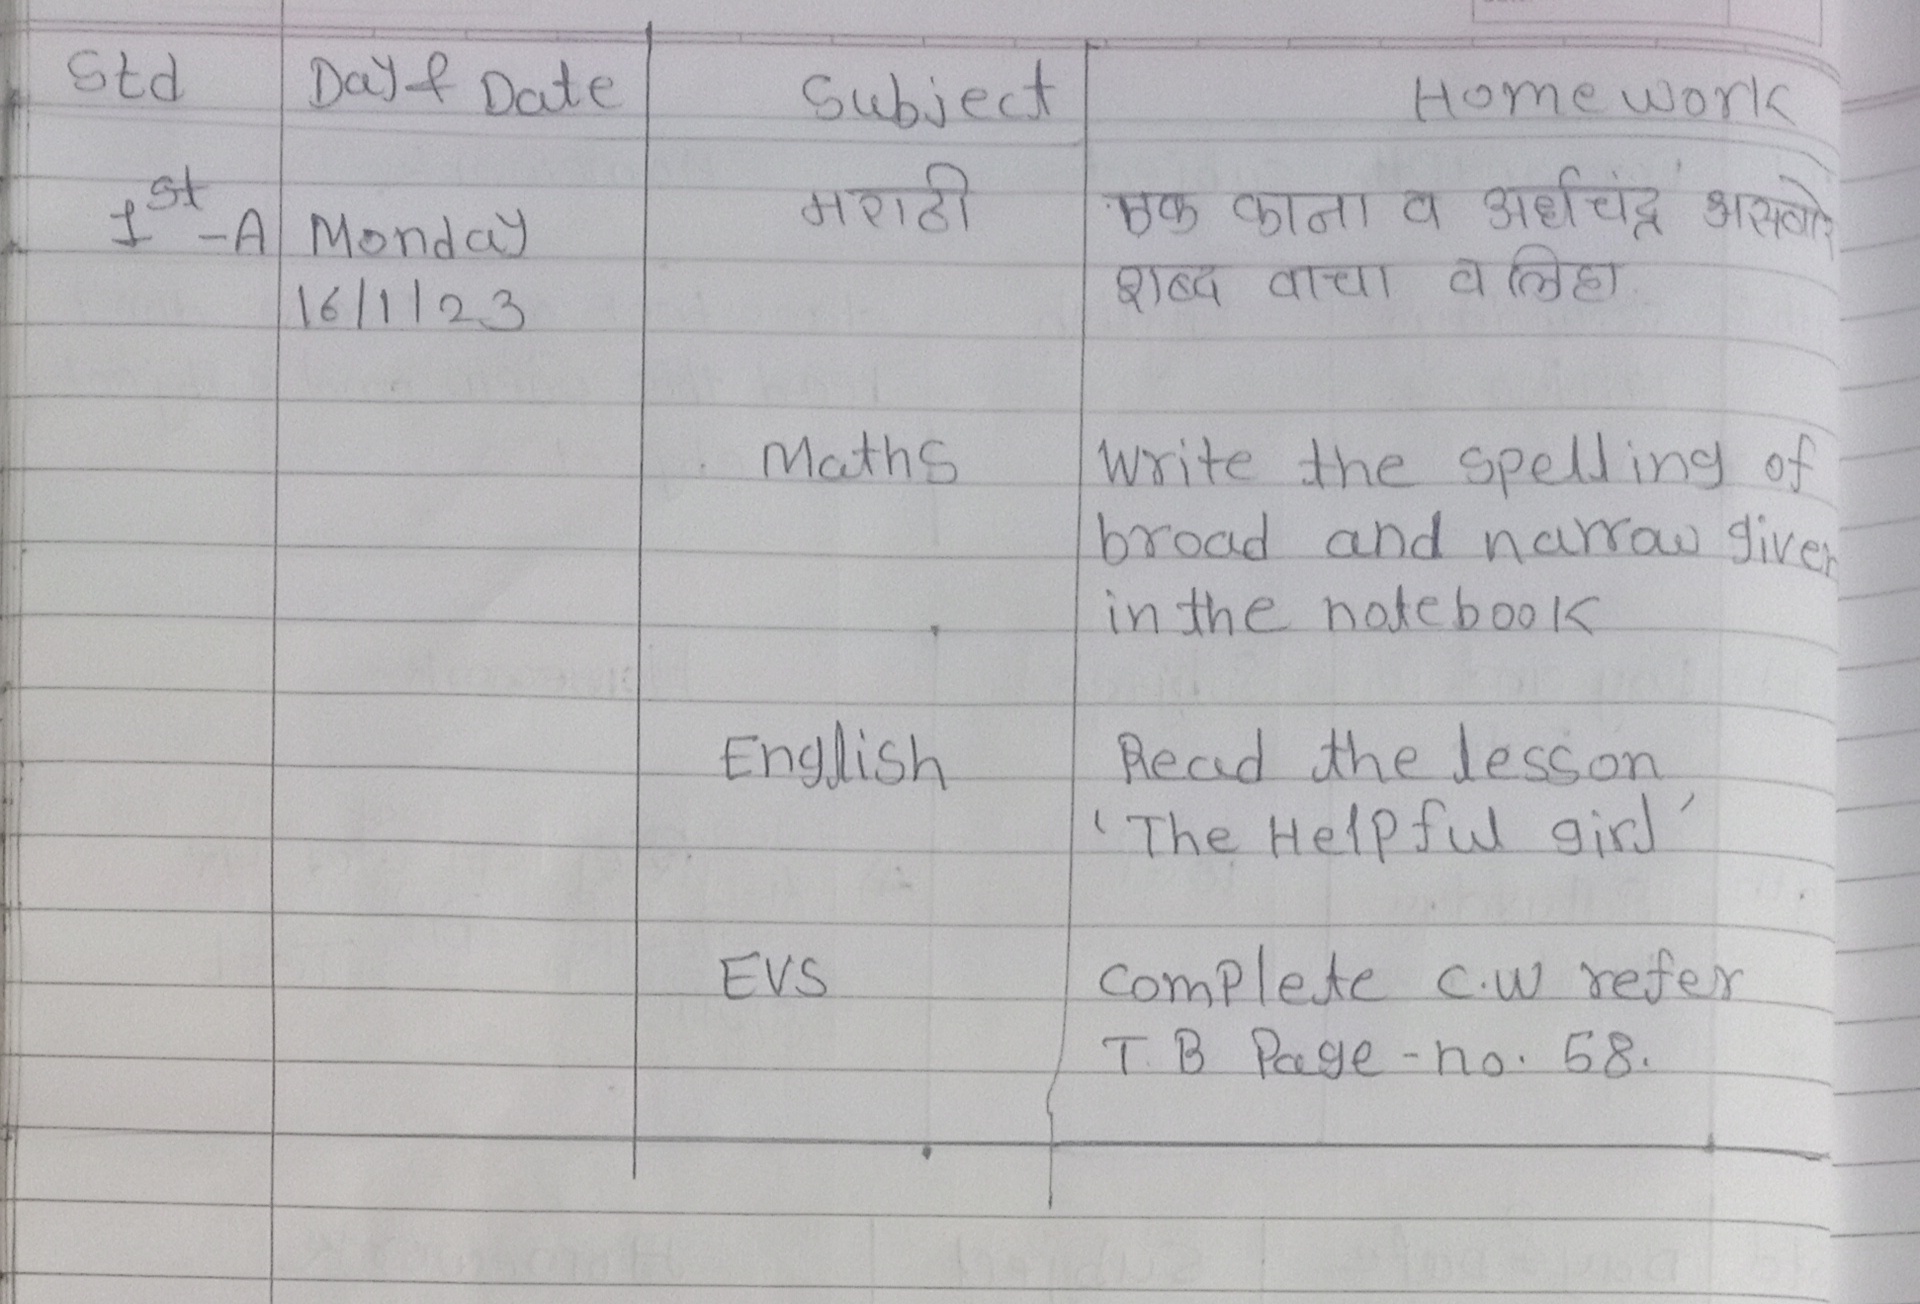 Std Day & Date Subject Homework
1st-A Monday मराठी एक काना व अर्धचंद्र असलेले
16/1/23 शब्द वाचा व लिहा.
Maths Write the spelling of
broad and narrow given
in the notebook
English Read the lesson
'The Helpful girl'
EVS complete c.w refer
T.B Page-no. 58.